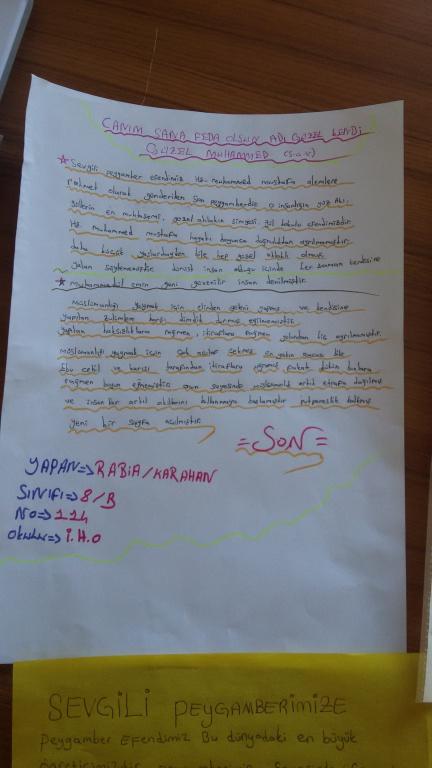 CANIM SANA FEDA OLSUN ADI GÜZEL KENDİ
GÜZEL MUHAMMED (S.a.v)
Sevgili peygamber efendimiz Hz. muhammed mustafa alemlere
rahmet olarak gönderilen son peygamberdir. o insanlığın göz
güllerin en muhteşemi, güzel ahlakın simgesi gül kokulu efendimizdir.
Hz. muhammed mustafa hayatı boyunca doğruluktan ayrılmamıştır.
daha küçük yaşlardayken bile hep güzel ahlaklı olmuş
yalan söylememiştir. dürüst insan olduğu içinde her zaman kendisine
muhammedül emin yani güvenilir insan denilmiştir.
müslümanlığı yaymak için elinden geleni yapmış ve kendisine
yapılan zulümlere karşı dimdik durmuş eğilmemiştir.
yapılan haksızlıklara rağmen, iftiralara rağmen yolundan hiç ayrılmamıştır.
müslümanlığı yaymak için çok acılar çekmiş en yakın bile
Ebu cehil ve karısı tarafından iftiralara uğramış fakat bütün bunlara
rağmen boyun eğmemiştir. onun sayesinde müslümanlık artık etrafa dağılmış
ve insanlar artık akıllarını kullanmaya başlamıştır putperestlik kalkmış
yeni bir sayfa açılmıştır.
=SON=
YAPAN=>RABİA/KARAHAN
SINIFI=>8/B
NO=>114
Okulu=>İ.H.O
SEVGİLİ PEYGAMBERİMİZE
Peygamber Efendimiz Bu dünyadaki en büyük